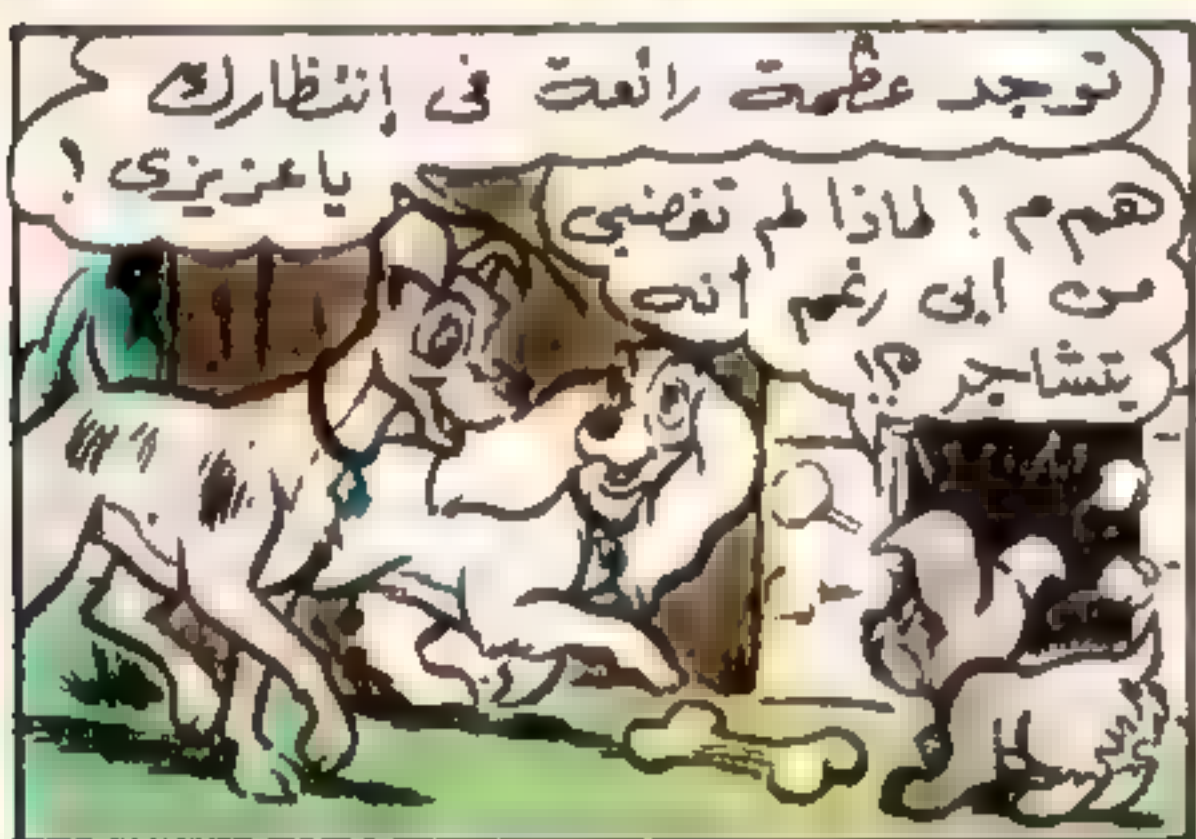 توجد عظمة رائعة فى إنتظارك
ياعزيزى !
هم م ! لماذا لم تغضبى
من أبى رغم أنه
يتشاجر ؟!